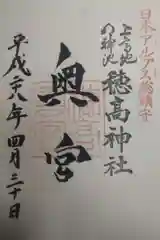 日本アルプス総鎮守
上高地
の神池
穂高神社
奥宮
平成二十八年四月三十日